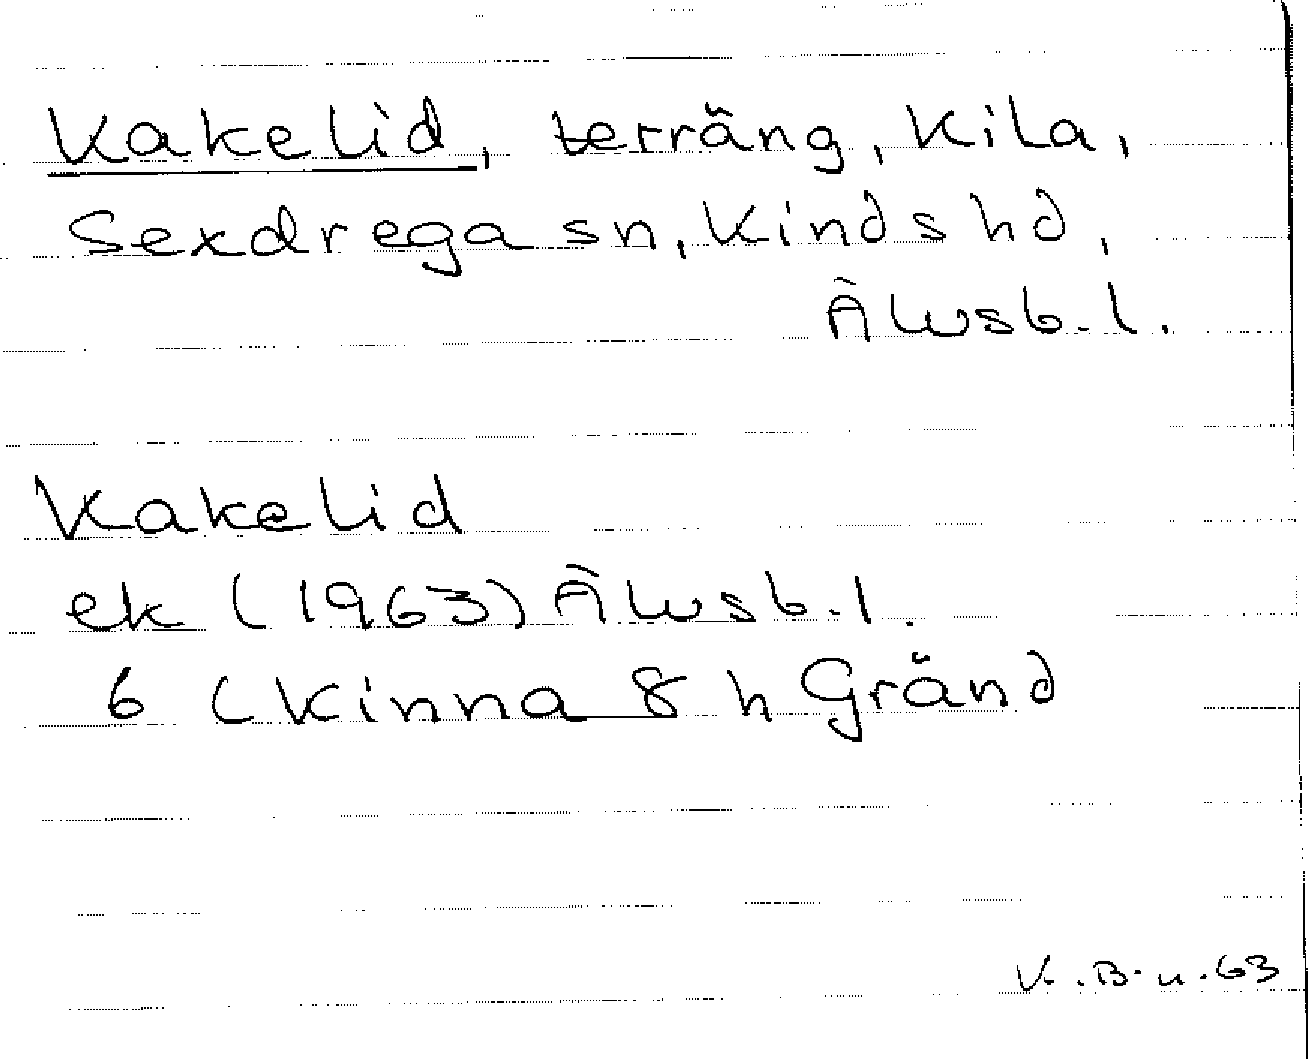 Kakelid, terräng, Kila,
Sexdrega sn, Kinds hd,
Älvsb. l.
Kakelid
ek (1963) Älvsb. l.
6 (Kinna 8 h Gränd
K. B-n. 63